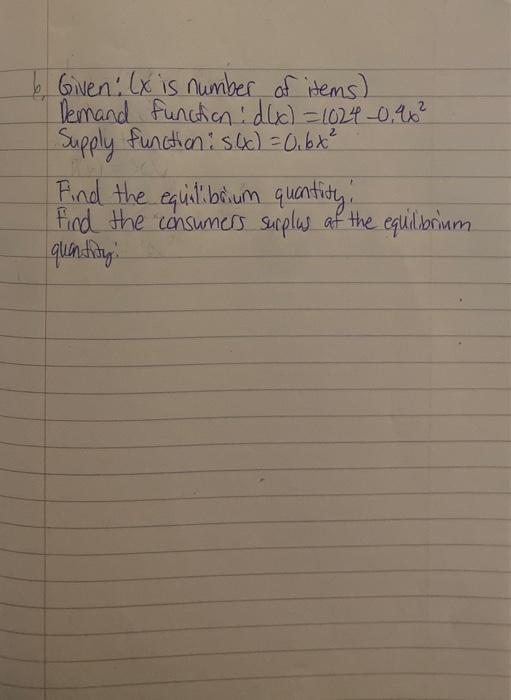 6. Given: (x is number of items)
Demand function: d(x) = 1024 - 0.4x²
Supply function: s(x) = 0.6x²
Find the equilibrium quantity:
Find the consumers surplus at the equilibrium
quantity: